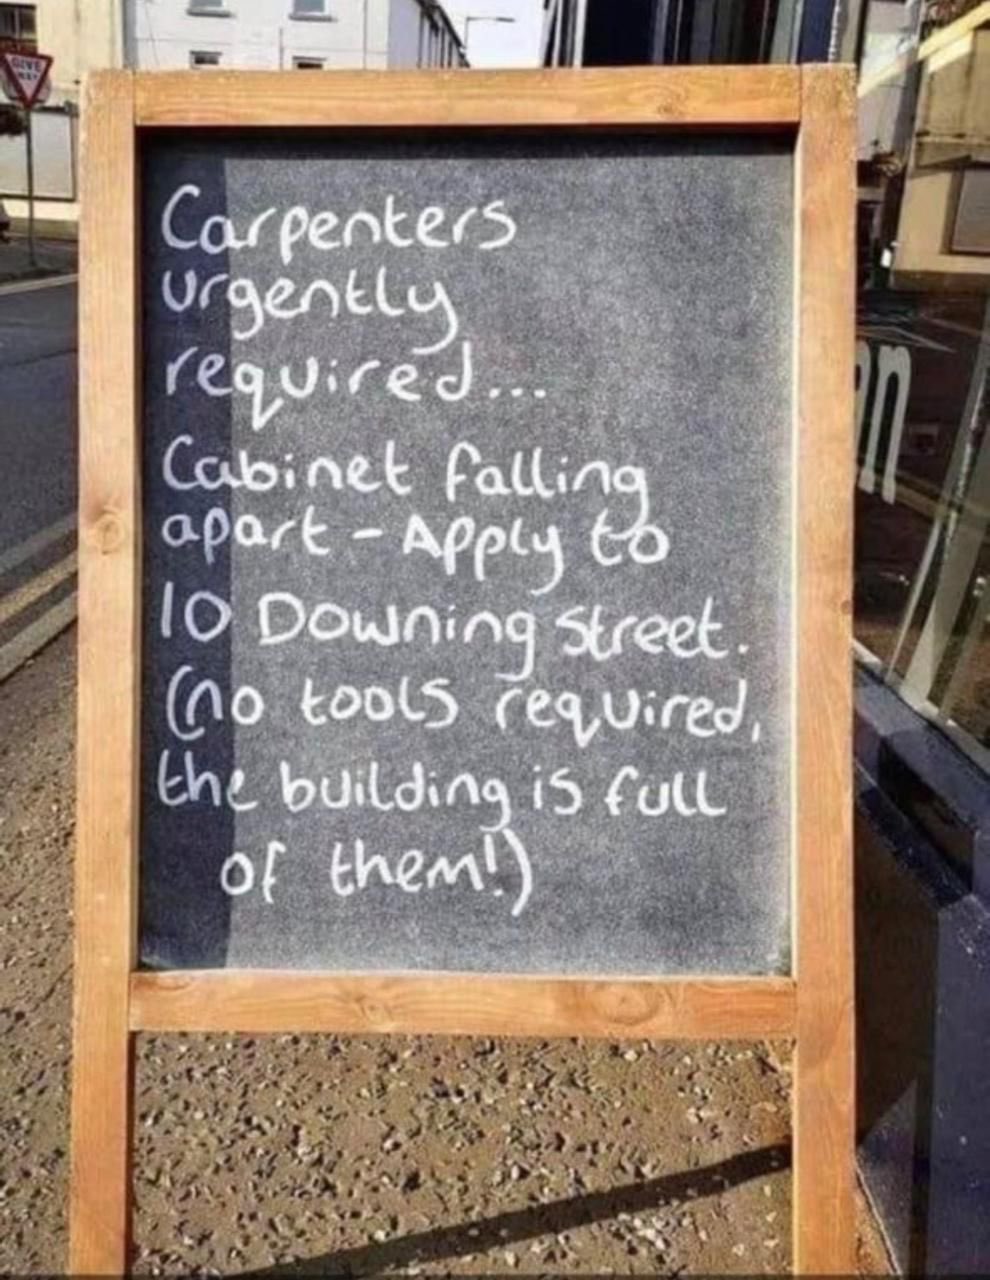 GIVE
WAY
Carpenters
urgently
required...
Cabinet falling
apart - Apply to
10 Downing Street.
(no tools required,
the building is full
of them!)